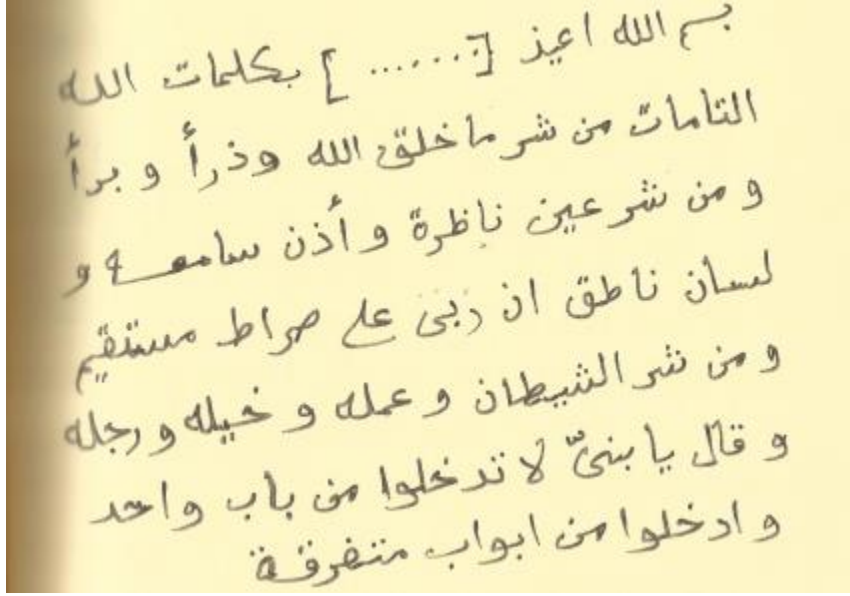 بسم الله اعيذ [.......] بكلمات الله
التامات من شر ما خلق الله وذرأ و برأ
و من شر عين ناظرة و أذن سامعه و
لسان ناطق ان ربى على صراط مستقيم
و من شر الشيطان و عمله و خيله و رجله
و قال يا بنىّ لا تدخلوا من باب واحد
و ادخلوا من ابواب متفرقة